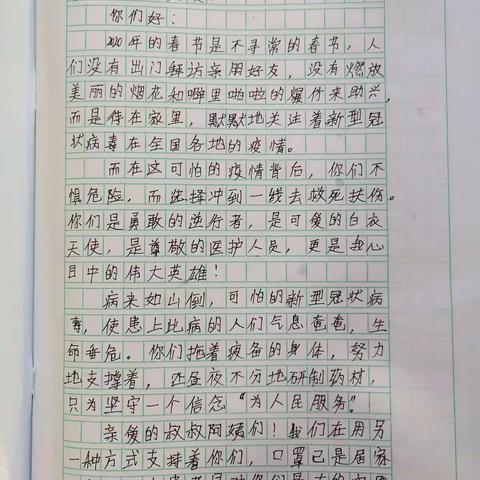 你们好：
2020年的春节是不寻常的春节，人
们没有出门拜访亲朋好友，没有燃放
美丽的烟花和噼里啪啦的爆竹来助兴，
而是待在家里，默默地关注着新型冠
状病毒在全国各地的疫情。
而在这可怕的疫情背后，你们不
惧危险，而选择冲到一线去救死扶伤。
你们是勇敢的逆行者，是可爱的白衣
天使，是尊敬的医护人员，更是我心
目中的伟大英雄！
病来如山倒，可怕的新型冠状病
毒，使患上此病的人们气息奄奄，生
命垂危。你们拖着疲惫的身体，努力
地支撑着，还昼夜不分地研制药材，
只为坚守一个信念“为人民服务”。
亲爱的叔叔阿姨们！我们在用另
一种方式支持着你们，口罩已是居家